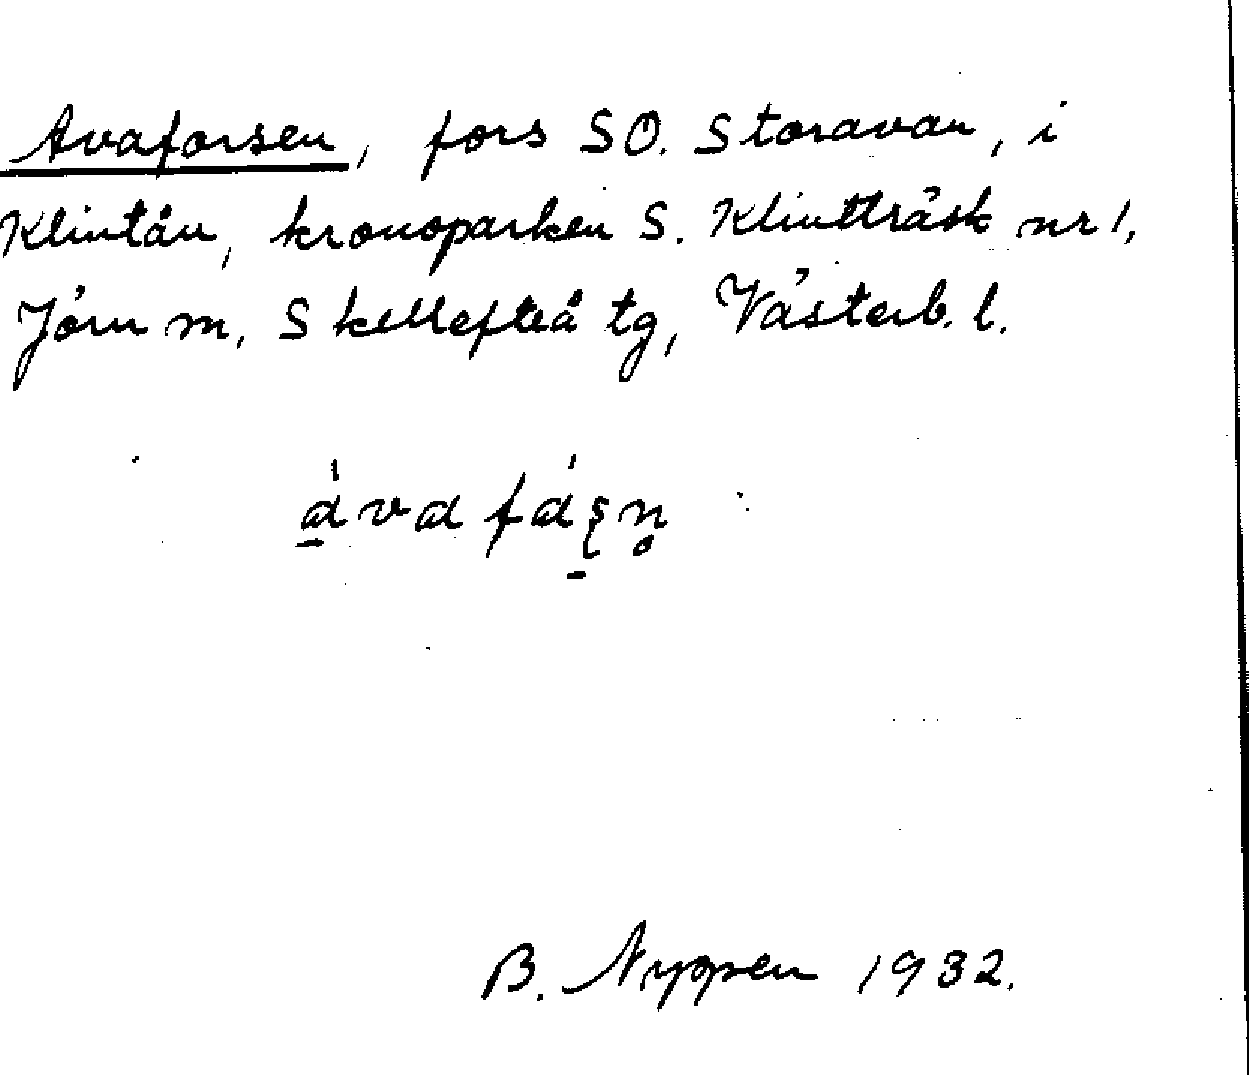 Avaforsen, fors SO. Storavan, i
Klintån, kronoparken S. Klintträsk nr 1,
Jörn sn, Skellefteå tg, Västerb. l.
ávafáşn̥
B. Nyppen 1932.